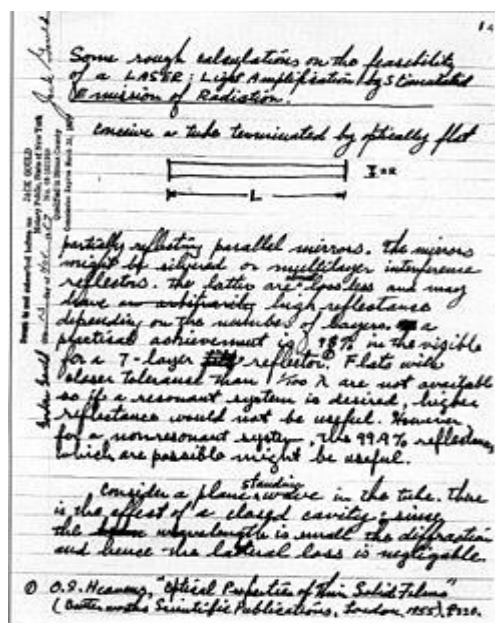 Some rough calculations on the feasibility
of a LASER: Light Amplification by Stimulated
Emission of Radiation.
conceive a tube terminated by optically flat
L
partially reflecting parallel mirrors. The mirrors
might be silvered or multilayer interference
reflectors. The latter are loss less and may
have high reflectance
depending on the number of layers. a
practical achievement is 98% in the visible
for a 7-layer reflector. Flats with
closer tolerance than 1/100 λ are not available
so if a resonant system is desired, higher
reflectance would not be useful. However
for a nonresonant system, the 99.9% reflectances
which are possible might be useful.
Consider a plane standing wave in the tube. There
is the effect of a closed cavity; since
the wavelength is small the diffraction
and hence the lateral loss is negligable.
① O.S. Heavens, "Optical Properties of Thin Solid Films"
(Butterworths Scientific Publications, London, 1955), p220.
JACK GOULD
Notary Public, State of New York
Qualified in Bronx County
Commission Expires March 30,
Gordon Gould
Jack Gould